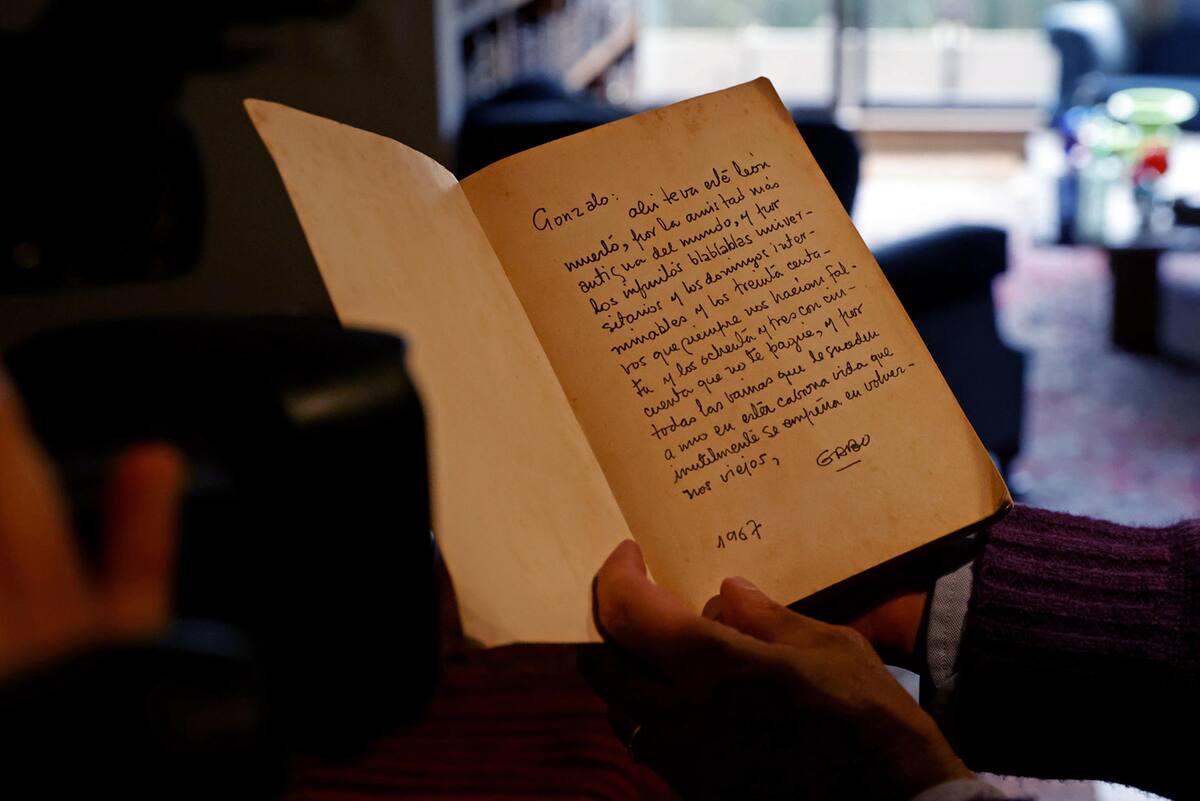 Gonzalo: ahi te va este león
muerto, por la amistad más
antigua del mundo, y por
los infinitos blablablas univer-
sitarios y los domingos inter-
minables y los treinta centa-
vos que siempre nos hacían fal-
ta y los ochenta y tres con cin-
cuenta que no te pagué, y por
todas las vainas que le suceden
a uno en esta cabrona vida que
inutilmente se empeña en volver-
nos viejos,
GABO
1967